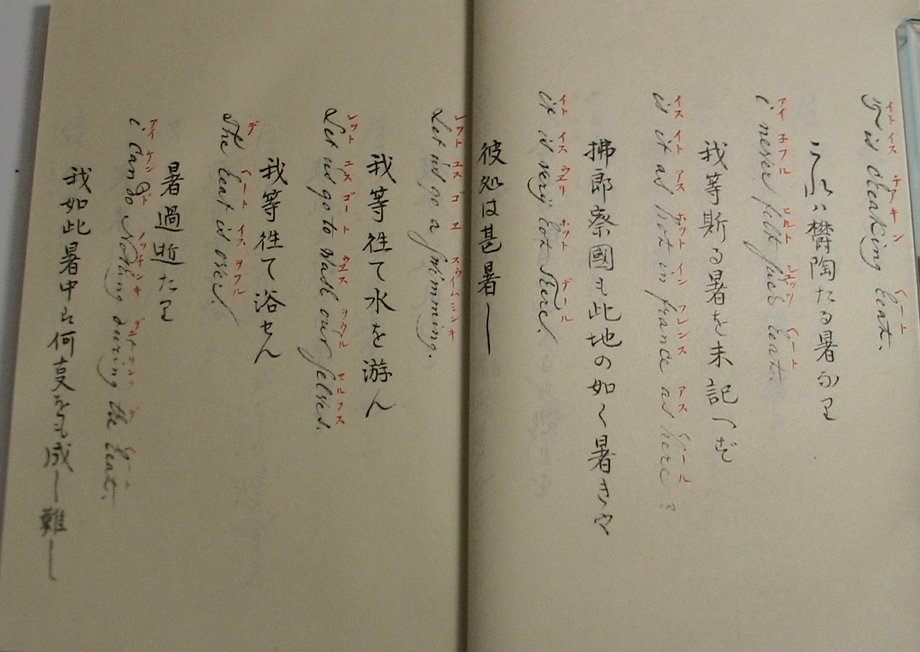 イト イス チアキン ヘート
T is cheaking heat.
これハ欝陶たる暑なり
アイ 子フル ヒルト シュッツ ヘート
i never felt fueh heat.
我等斯る暑を未記へず
イス イト アス ホット イン フレンス アス ヘール
is it as hot in france as here ?
拂郎察國も此地の如く暑きや
イト イス ウエリ ホット デール
it is very hot there
彼処は甚暑し
レット ユス ゴヲ エ スウイムミンキ
Let us go a swimming.
我等徃て水を游ん
レット ユス ゴー ト ヲウル セルフス
Let us go to wash our selves.
我等徃て浴せん
デ ヘート イス ヲフル
The heat is over.
暑過逝たり
アイ ケン ド ノッチンキ デ ヘート
i can do Nothing during the heat.
我如此暑中に何をも成し難し